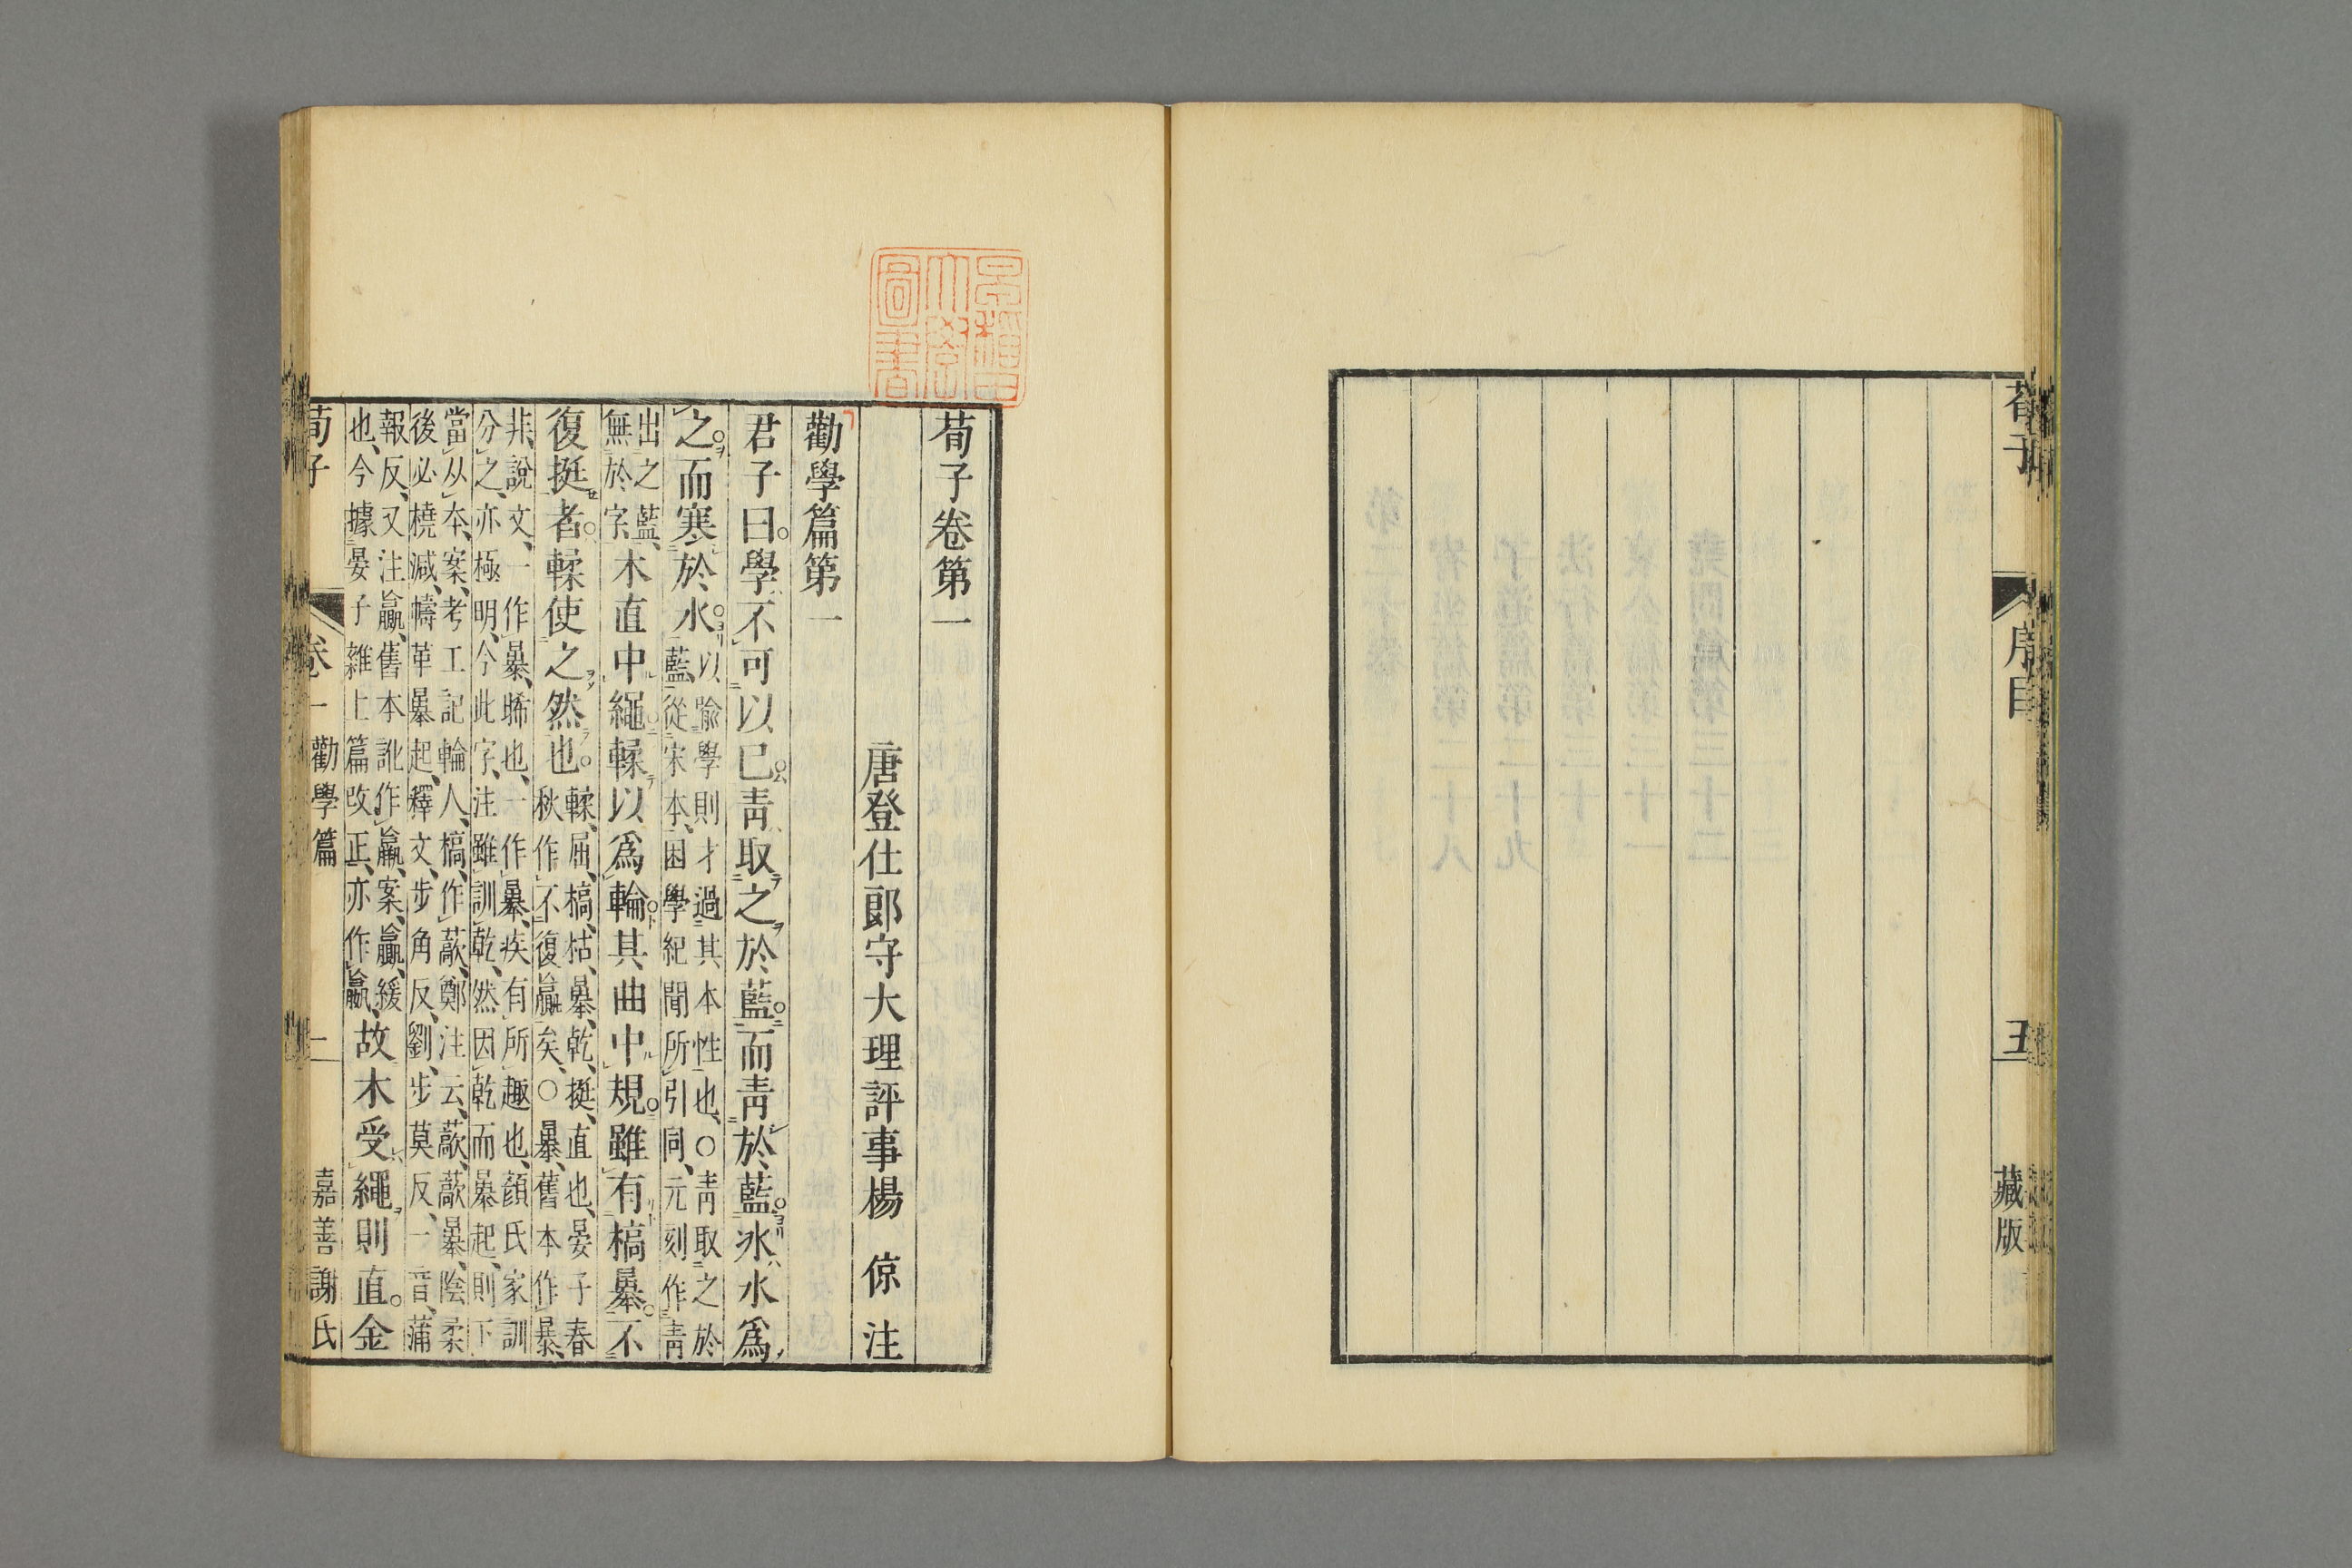 荀子
序目
五
藏版
早稻田大學圖書
荀子卷第一
唐登仕郎守大理評事楊 倞 注
勸學篇第一
君子曰。學不可以已。靑取之於藍。而靑於藍。冰水爲
之。而寒於水。
以喻學則才過其本性也、○靑取之於
藍、從宋本、困學紀聞所引同、元刻作靑
出之藍、
無於字、
木直中繩。輮以爲輪。其曲中規。雖有槁暴。不
復挺者。輮使之然也。
輮、屈、槁、枯、暴、乾、挺、直也、晏子春
秋作不復贏矣、○暴、舊本作暴、
非、說文、一作㬥、晞也、一作㬥、疾有所趣也、顏氏家訓
分之、亦極明、今此字、注雖訓乾、然因乾而暴起、則下
當从夲、案、考工記輪人、槁、作藃、鄭注云、藃、藃暴、陰柔
後必橈減、幬革暴起、釋文、步角反、劉、步莫反、一音、蒲
報反、又注贏、舊本訛作羸、案、贏、緩
也、今據晏子雜上篇改正、亦作嬴、
故木受繩則直。金
荀子
卷一
勸學篇
一
嘉善謝氏